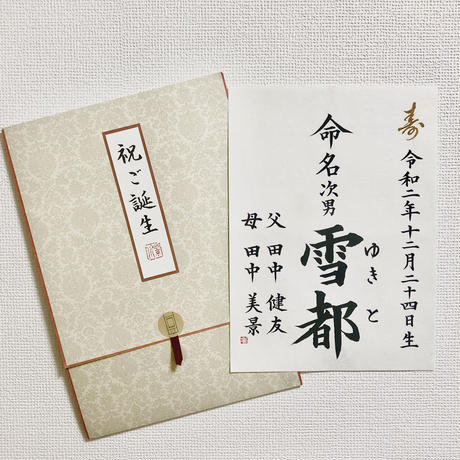 祝ご誕生
寿
令和二年十二月二十四日生
命名
次男
雪都
ゆきと
父 田中 健友
母 田中 美景